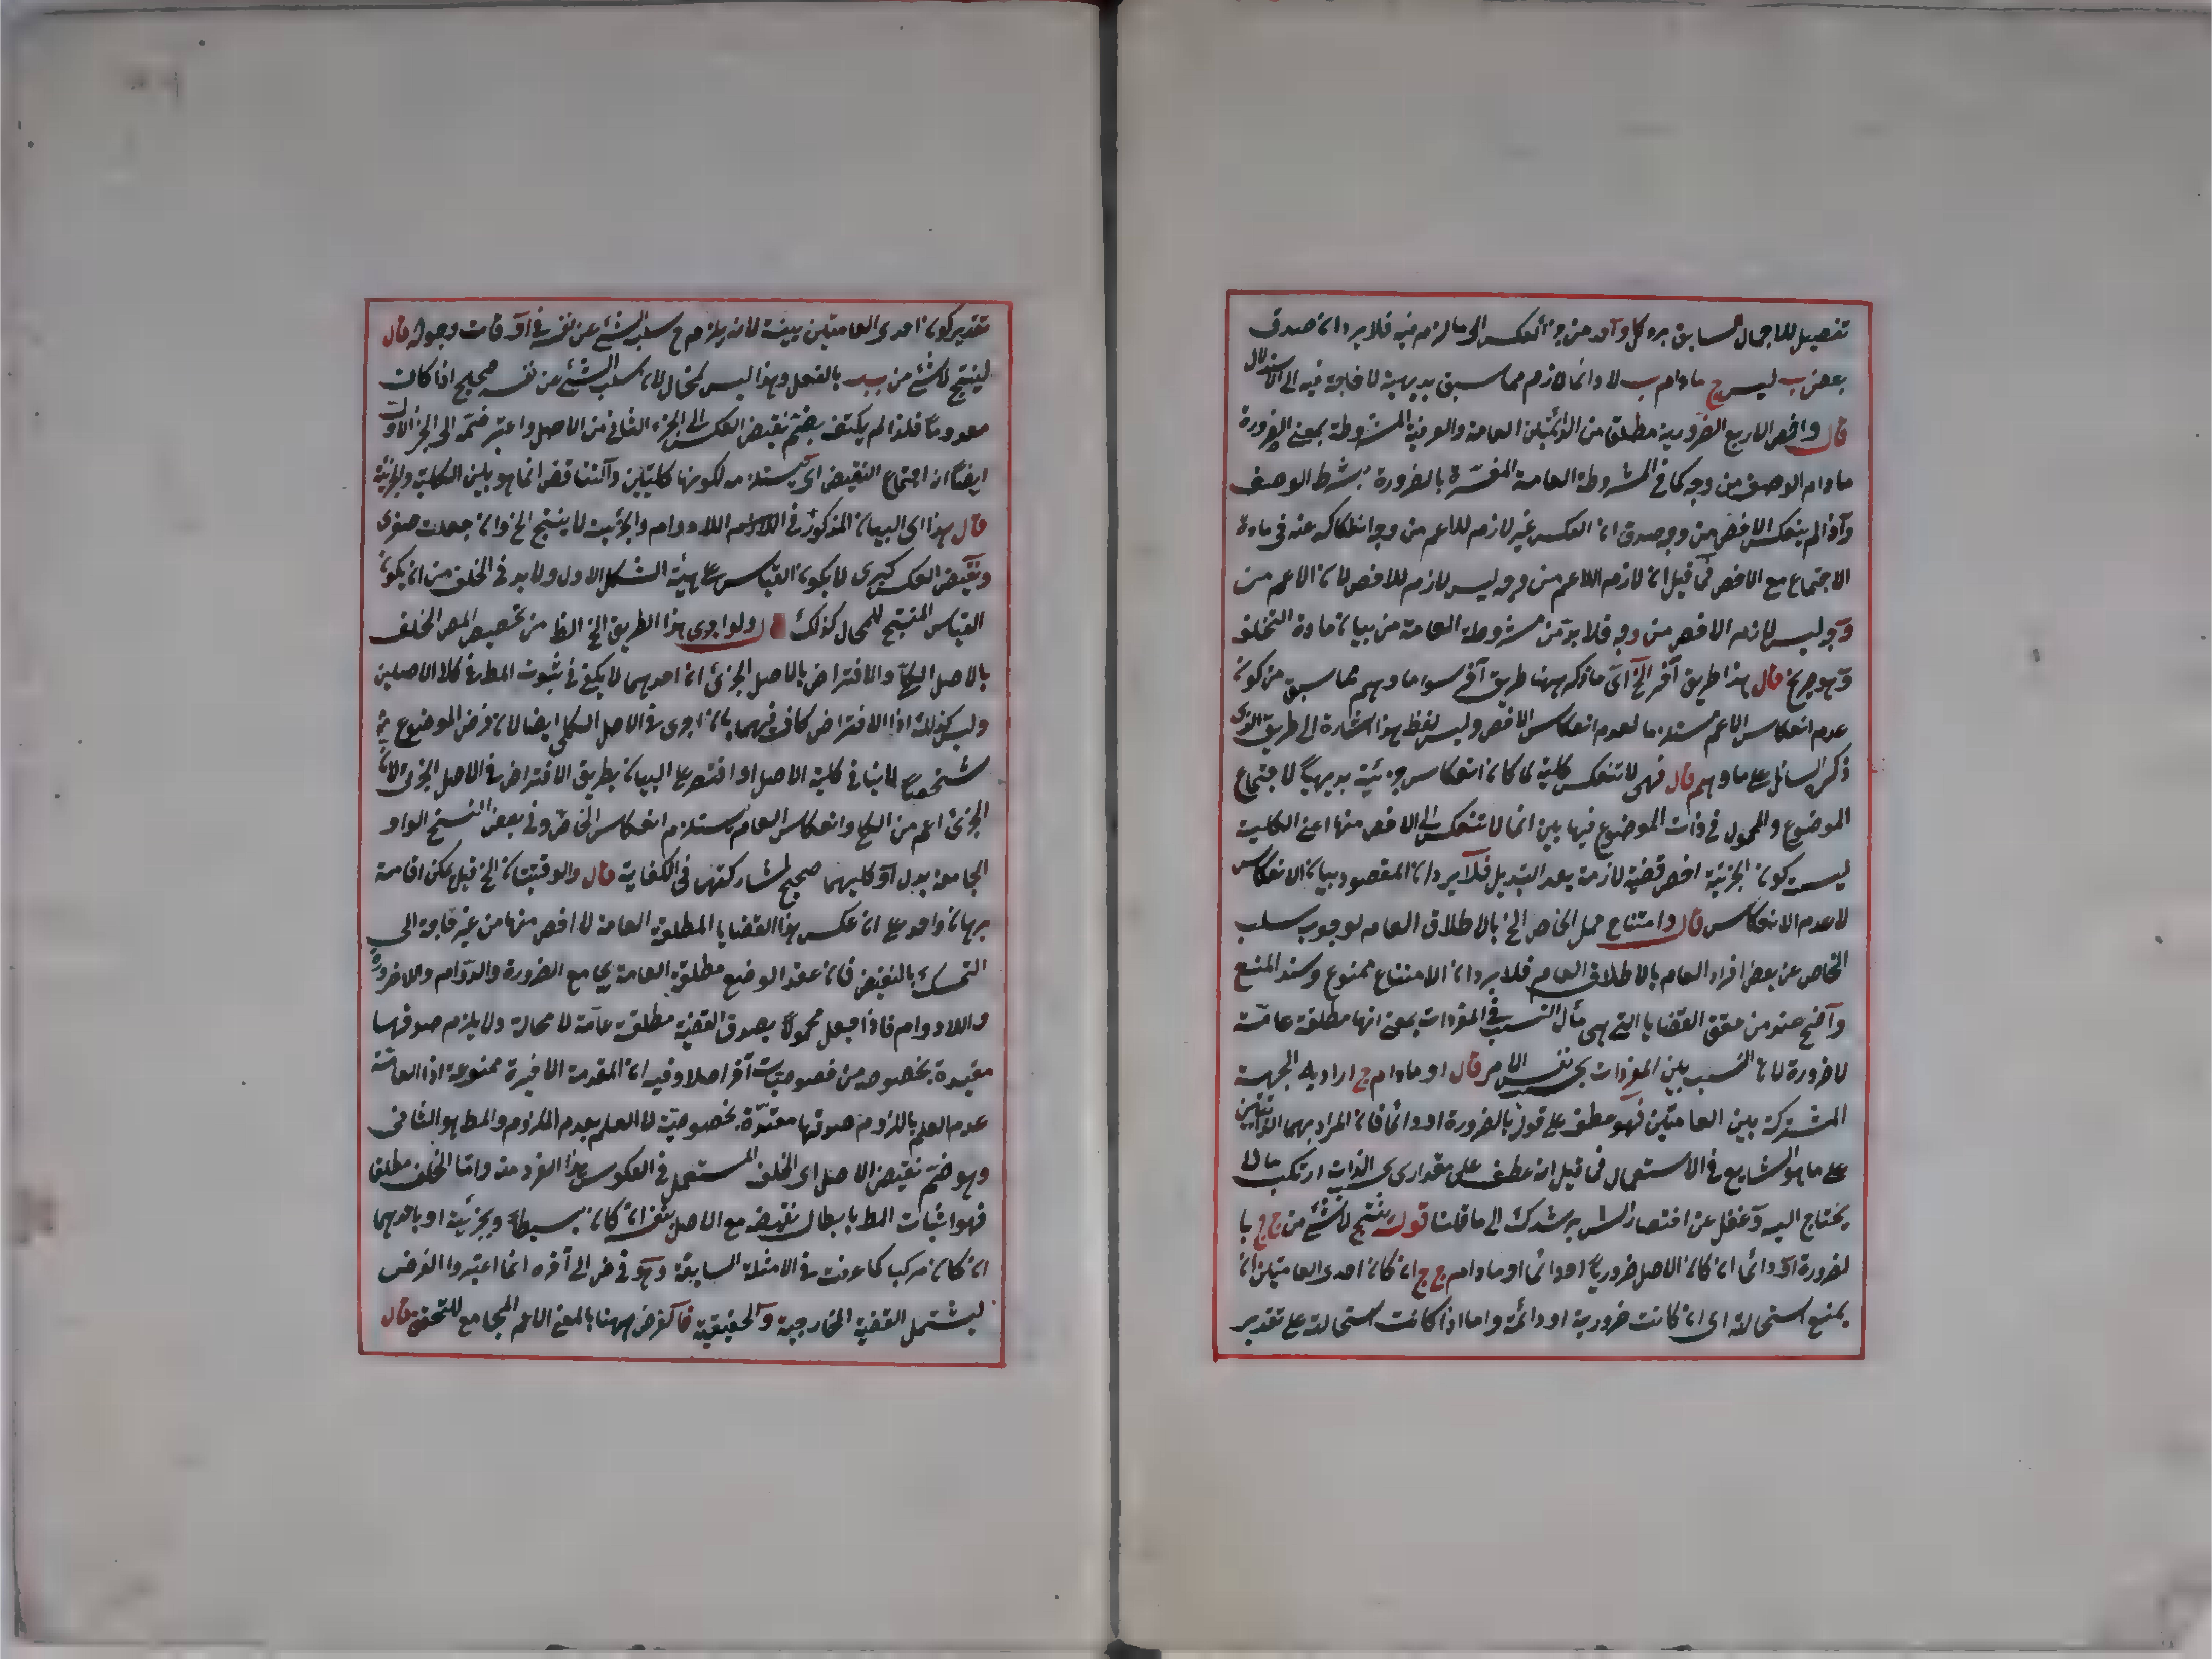 تفصيل للاجمال السابق برد كل واحد من جزئى العكس الى ما لزم منه فلا يرد ان صدق
بعض ب ليس ج ما دام ب لا دائما لازم مما سبق بديهية لا حاجة فيه الى الاستدلال
قال واخص الاربع الضرورية مطلقا من الدائمتين العامة والعرفية المشروطة بمعنى الضرورة
ما دام الوصف من وجه كما فى المشروطة العامة المفسرة بالضرورة بشرط الوصف
واذا لم ينعكس الاخص من وجه صدق ان العكس غير لازم للاعم من وجه انفكاكه عنه فى مادة
الاجتماع مع الاخص فما قيل ان لازم الاعم من وجه ليس لازم للاخص لان الاعم من
وجه ليس لازم الاخص من وجه فلا بد من مشروطة العامة من بيان مادة التخلف
وهو جريح قال هذا طريق آخر الخ اى ما ذكره ههنا طريق آخر سوا ما وهم مما سبق من كون
عدم انعكاس الاعم مستلزما لعدم انعكاس الاخص وليس لفظ هذا اشارة الى طريق الذى
ذكر السائل على ما وهم قال فهى لا تنعكس كلية لما كان انعكاس جزئية بديهيا لاجتماع
الموضوع والمحمول فى ذات الموضوع فيها بين انها لا تنعكس الى الاخص منها اعنى الكلية
ليست كون الجزئية اخص قضية لازمة بعد التبديل فلا يرد ان المقصود بيان الانعكاس
لا عدم الانعكاس قال وامتناع حمل الخاص الخ بالاطلاق العام لوجوب سلب
الخاص عن بعض افراد العام بالاطلاق العام فلا يرد ان الامتناع ممنوع وسند المنع
واضح عند من حقق القضايا التى هى مآل النسب فى المفردات بمعنى انها مطلقة عامة
لا ضرورة لان النسب بين المفردات بحسب نفس الامر قال او ما دام ج اراد به الجهة
المشتركة بين العامتين فهو عطف على قوله بالضرورة او دائما فان المراد بهما الذاتيتين
على ما هو الشايع فى الاستعمال فما قيل انه عطف على مقدار اى بحسب الذات ارتكب ما لا
يحتاج اليه وغفل عن اختصار الش يرشدك الى ما قلنا قوله ينتج لا شئ من ج ج با
لضرورة او دائما ان كان الاصل ضروريا او دائما او ما دام ج ج ان كان احدى العامتين ان
يمنع استحالة اى ان كانت ضرورية او دائمة واما اذا كانت استحالته على تقدير
تقدير كون احدى العامتين بينة لانه يلزم ح سلب الشئ عن نفسه فى اوقات وجوده قال
لينتج لا شئ من ب ب بالفعل وهذا ليس بمحال لان سلب الشئ عن نفسه صحيح اذا كان
معدوما فلذا لم يكتف بضم نقيض العكس الى الجزء الثانى من الاصل واعتبر ضمه الى الجزء الاول
ايضا ان اجتماع النقيض اى يستلزمه لكونها كليتين والتناقض انما هو بين الكلية والجزئية
قال هذا اى البيان المذكور فى اللادوام والجزئيت لا ينتج الخ وان جعلت صغرى
ونقيض العكس كبرى لا يكون القياس على هيئة الشكل الاول ولا بد فى الخلف من ان يكون
القياس المنتج للمحال كذلك ولو اجرى هذا الطريق الخ الظ من تخصيص المص الخلف
بالاصل الكلى والافتراض بالاصل الجزئى ان احدهما لا يكفى فى ثبوت المط فى كلا الاصلين
وليس كذلك اذ الافتراض كاف فيهما بان اجرى فى الاصل الكلى ايضا لان فرض الموضوع شيئا
شخصيا لا ينافى كلية الاصل او اقتصر على البيان بطريق الافتراض فى الاصل الجزئى لان
الجزئى اعم من الكلى وانعكاس العام يستلزم انعكاس الخاص وفى بعض النسخ الواو
الجامعة بدل او كليهما صحيح لمشاركتهما فى الكفاية قال والوقتيتان الخ قيل يمكن اقامة
برهان واحد على ان عكس هذا القضايا المطلقة العامة لا اخص منها من غير حاجة الى
التمسك بالنقيض فان عقد الوضع مطلقة العامة يجامع الضرورة والدوام واللاضرورة
واللادوام فاذا جعل محمولا يصدق القضية مطلقة عامة لا محالة ولا يلزم صدقها
مقيدة بخصوصه من خصوصيات آخر اصلا وفيه ان المقدمة الاخيرة ممنوعة اذ الغاية
عدم العلم بلزوم صدقها مقيدة بخصوصية لا العلم بعدم اللزوم والمط هو الثانى
وهو ضم نقيض الاصل اى الخلف المستعمل فى العكوس هذا الفرد منه واما الخلف مطلق
فهو اثبات المط بابطال نقيضه مع الاصل بنفسه ان كان بسيطا وبجزئية او باحدهما
ان كان مركبا كما عرفت فى الامثلة السابقة وهو فرض الى آخره انما اعتبروا الفرض
ليشتمل القضية الخارجية والحقيقية فالفرض ههنا بالمعنى الاعم المجامع للتحقق قال